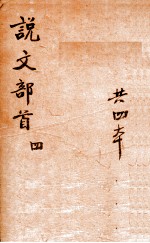 説文部首
四
共四本